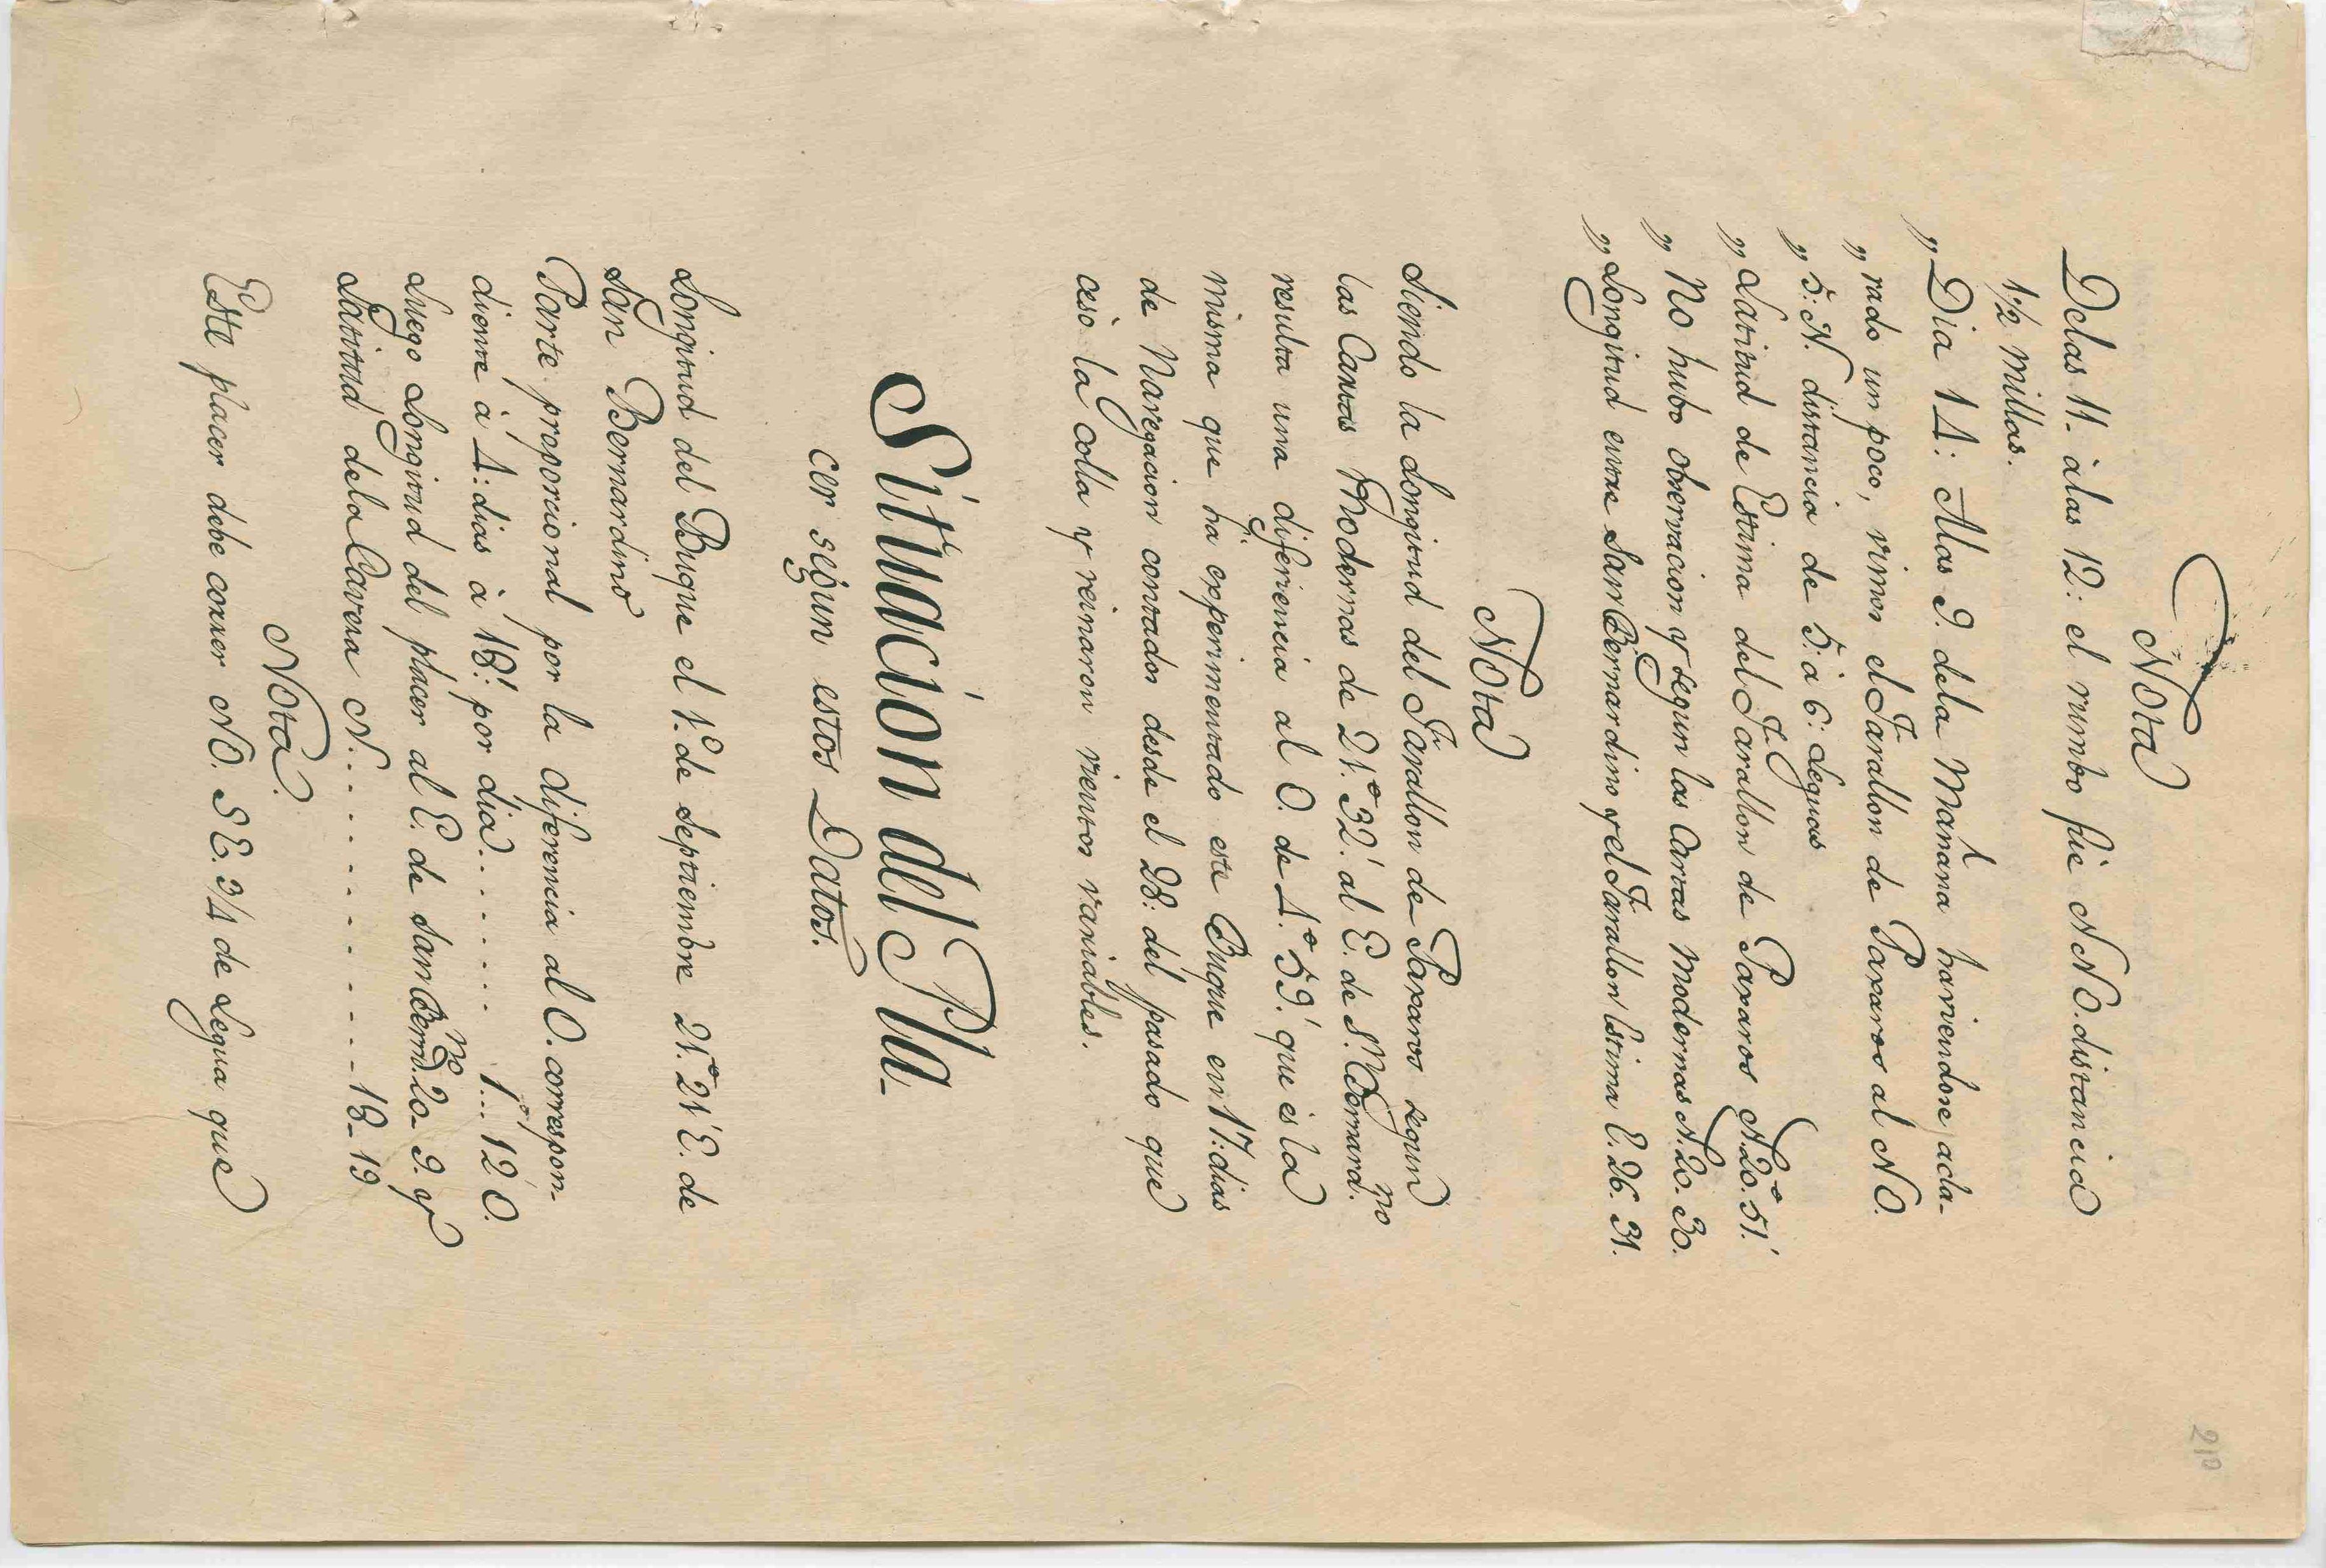 Nota
Delas 11. àlas 12: el rumbo fuè NNO. distancia
1½ millas.
„Dia 14: Alas 9. dela Mañana haviendose acla-
„rado un poco, vimos el Farallon de Paxaros al NO.
„5: N. distancia de 5: à 6: Leguas
„Latitud de Estima del Farallon de Paxaros N. 20.° 51.'
„No hubo observacion y segun las Cartas modernas N. 20. 30.
„Longitud entre San Bernardino y el Farallon Estima E. 26. 31.
Nota
Siendo la Longitud del Farallon de Paxaros segun
las Cartas Modernas de 21.° 32.' al E. de S.n Bernard.no
resulta una diferiencia al O. de 4.° 59.' que ès la
misma que hà experimentado este Buque en 17: dias
de Navegacion contados desde el 28: del pasado que
cesò la colla y reinaron vientos variables.
Situacion del Pla-
cer segun estos Datos.
Longitud del Buque el 1.º de Septiembre 21.° 21' E. de
San Bernardino
Parte proporcional por la diferencia al O. correspon-
diente à 4: dias à 18.' por dia . . . . . . . . 1.° . . 12' O.
Luego Longitud del placer al E. de San Bern.no 20_ 9. y
Latitud dela Cavera N. . . . . . . . . . . . . 18_19
Nota.
Este placer debe correr NO. SE. 3/4 de Legua que
210